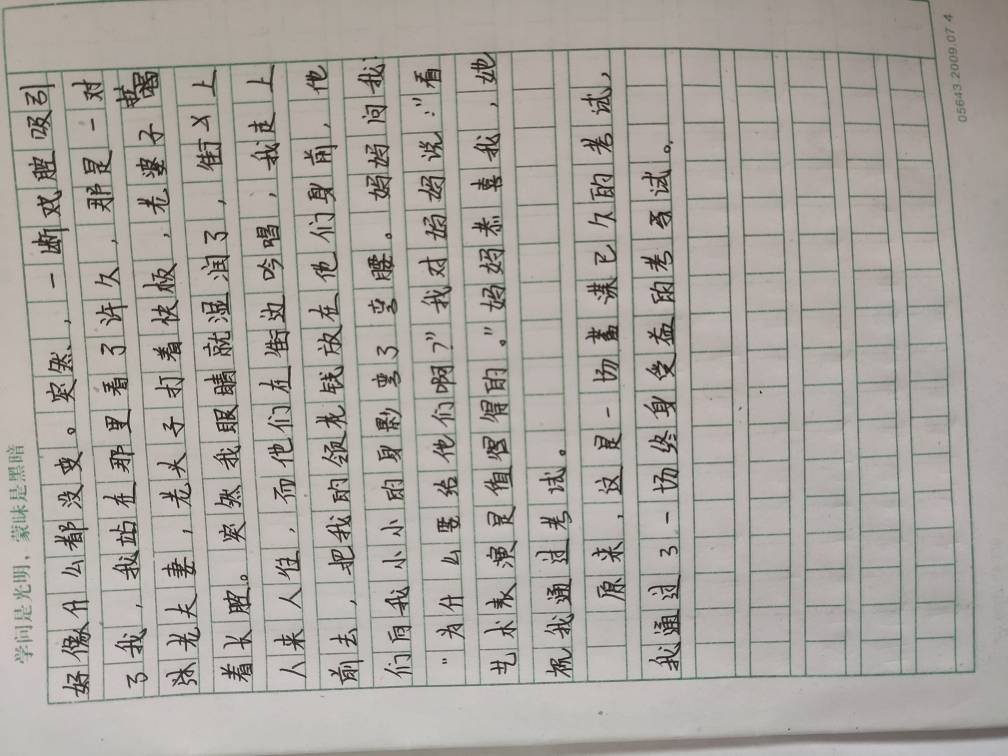 学问是光明，蒙昧是黑暗
好像什么都没变。突然，一断戏腔吸引
了我，我站在那里看了许久，那是一对
老夫妻，老夫子打着快板，老婆子唱
着长腔。突然我眼睛就湿润了，街上
人来人往，而他们在街边吟唱，我走上
前去，把我的领花钱放在他们身前，他
们向我小小的身影弯了弯腰。妈妈问我：
“为什么要给他们啊？”我对妈妈说：“看
艺术表演是值得的。”妈妈恭喜我，她
祝我通过考试。
原来，这是一场蓄谋已久的考试，
我通过了一场终身受益的考试。
05643.2009.07 4